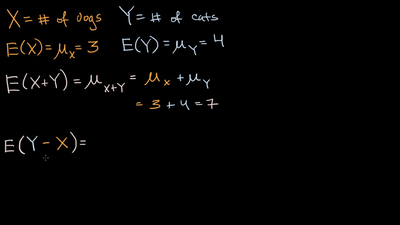 X = # of dogs Y = # of cats
E(X) = μ_X = 3 E(Y) = μ_Y = 4
E(X+Y) = μ_X+Y = μ_X + μ_Y
= 3 + 4 = 7
E(Y − X) =